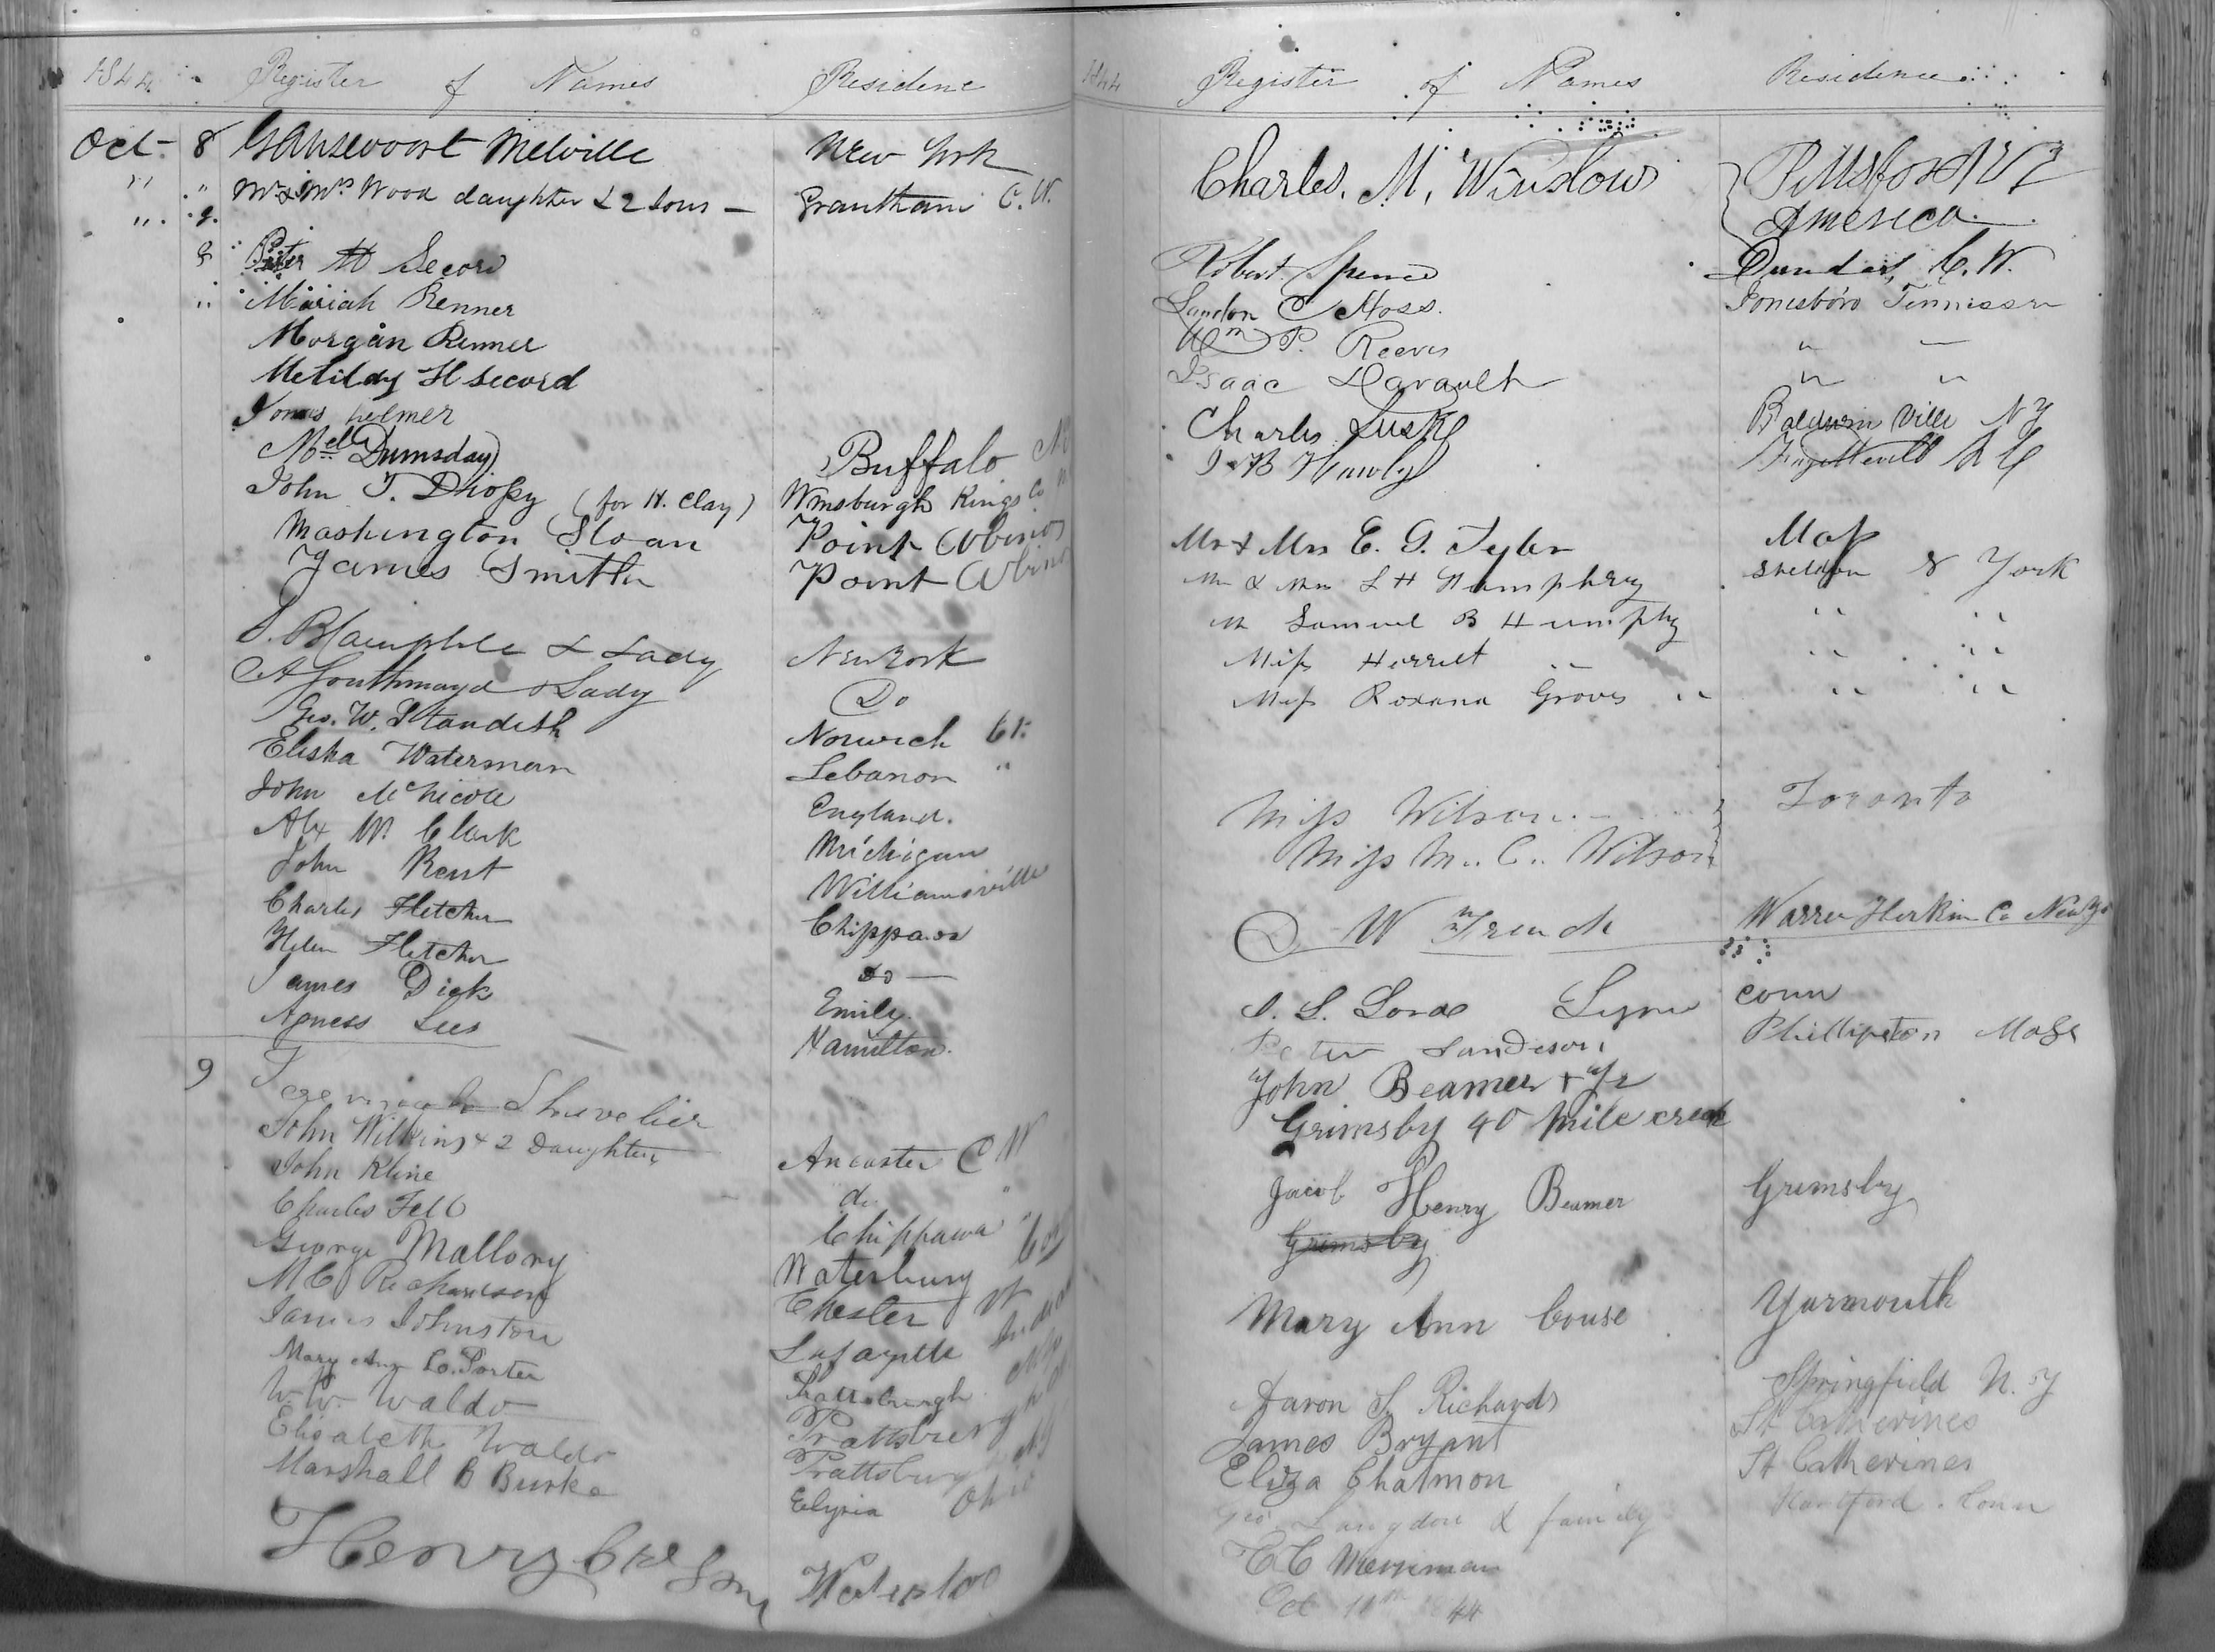 1844. Register of Names Residence
Oct- 8 Gansevoort Melville New York
" " Mr & Mrs Wood daughter & 2 sons — Grantham C.W.
" . 9.
9 Peter H Secord
" Mariah Renner
Morgan Renner
Metildy H Secord
Jonas helmer
Mel Dumsday Buffalo
John T. (for H. Clay) Wmsburgh Kings Co
Washington Sloan Point Abino
James Smith Point Abino
& Lady New York
A Southmayd & Lady Do
Geo. W. Standish Norwich Ct.
Elisha Waterman Lebanon "
John McNicole England.
Alx W. Clark Michigan
John Kent Williamsville
Charles Fletcher Chippawa
Helen Fletcher do —
James Dick Emily.
Agness Lees Hamilton.
9
John Wilkins & 2 Daughters Ancaster C W
John Kline do "
Charles Fell Chippawa "
George Mallory Waterbury
M C Richardson Chester Vt
James Johnston Lafayette
Mary Ann Porter Prattsburgh
W. W. Waldo Prattsburgh
Elisabeth Waldo Prattsburg NY
Marshall B Burke Elyria Ohio
Henry Waterloo
1844 Register of Names Residence
Charles. M. Winslow Pittsford
America.
Robert Spence Dundas, C. W.
Landon C Hoss. Jonesboro Tennessee
Wm P. Reeves " —
Isaac " "
Charles Luske Baldwin Ville NY
Mr & Mrs E. G. Tyler Mass
Mr & Mrs L H Humphrey Sheldon & York
Mr Samuel B Humphy " "
Miss Herriet " " "
Miss Roxana Groves " " "
Miss Wilson Toronto
Miss M. C. Wilson
D W French Warren Herkim Co New Yo
S. L. Lord Lyme Conn
Peter Sandeson Phillipston Mass
John Beamer & Jr
Grimsby 40 Mile creek
Jacob Henry Beamer Grimsby
Grimsby
Mary Ann Couse Yarmouth
Aaron S. Richards Springfield N. Y
James Bryant St Catherines
Eliza Chatmon St Catherines
Geo. Langdon & family Hartford. Conn
C C Merriman
Oct 11th 1844